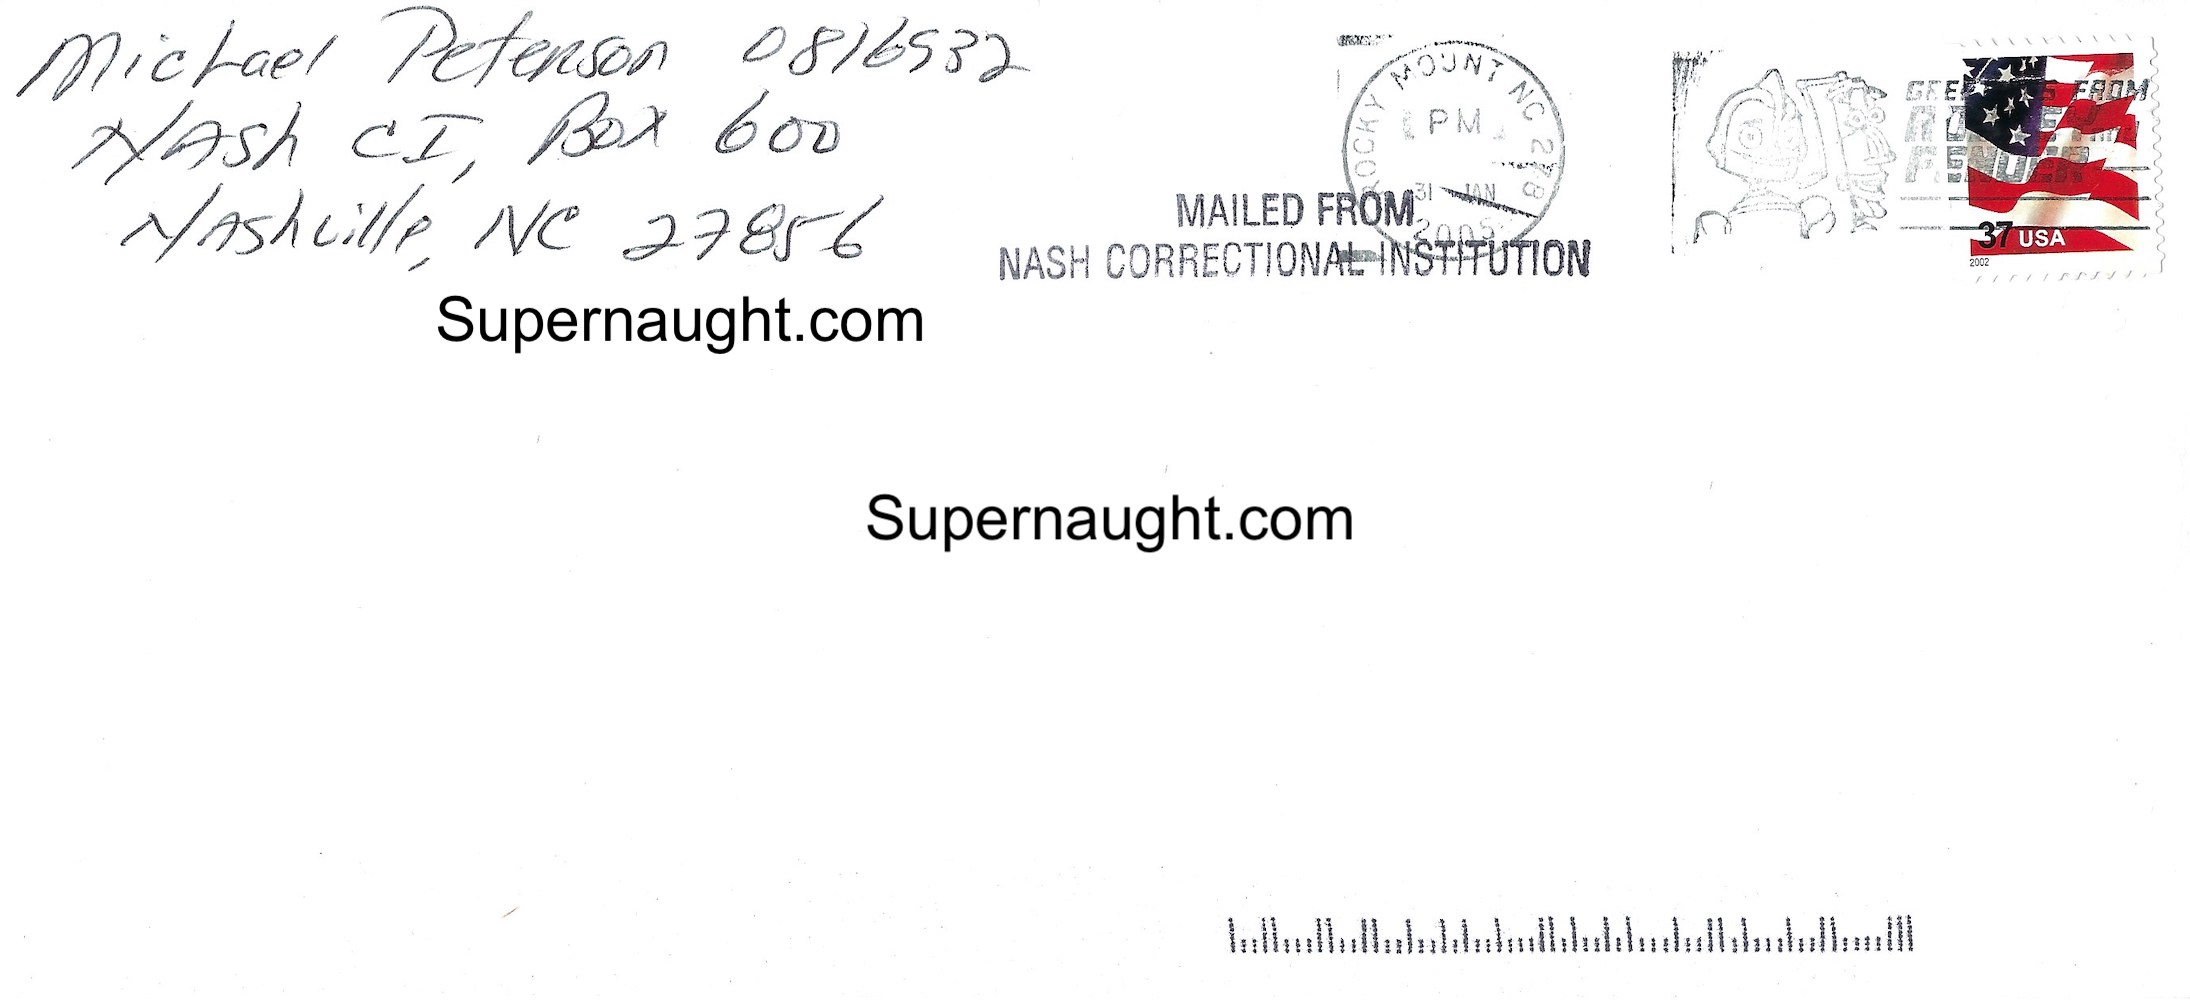 Michael Peterson 0816532
NAsh CI, Box 600
NAshville, NC 27856
ROCKY MOUNT NC 278
PM
31 JAN
2005
MAILED FROM
NASH CORRECTIONAL INSTITUTION
FROM
37 USA
2002
Supernaught.com
Supernaught.com